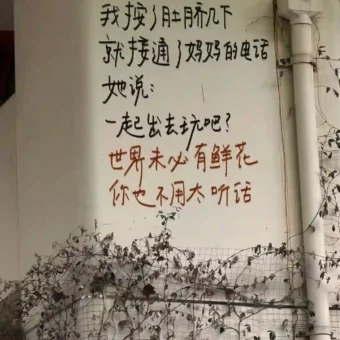 我按了肚脐几下
就接通了妈妈的电话
她说：
一起出去玩吧？
世界未必有鲜花
你也不用太听话